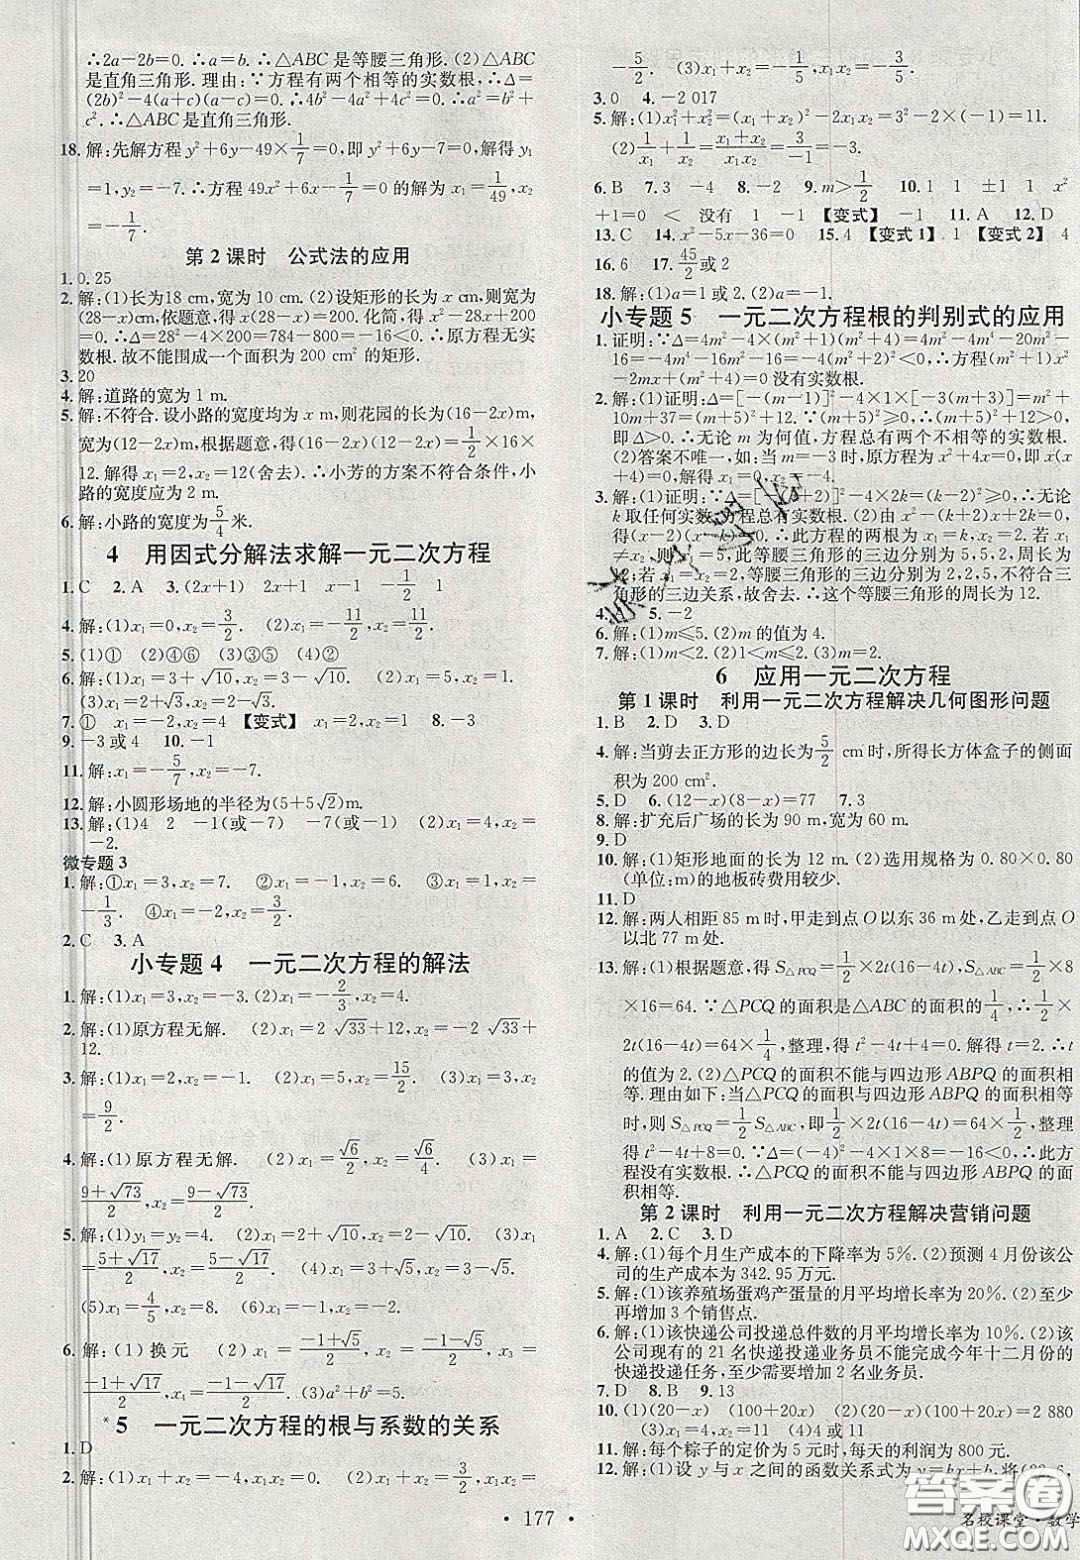 ∴2a-2b=0. ∴a=b. ∴△ABC是等腰三角形.(2)△ABC
是直角三角形. 理由:∵方程有两个相等的实数根,∴Δ=
(2b)²-4(a+c)(a-c)=0. ∴4b²-4a²+4c²=0. ∴a²=b²+
c². ∴△ABC是直角三角形.
18.解:先解方程y²+6y-49×1/7=0,即y²+6y-7=0,解得y₁
=1,y₂=-7. ∴方程49x²+6x-1/7=0的解为x₁=1/49,x₂
=-1/7.
第2课时 公式法的应用
1.0.25
2.解:(1)长为18 cm,宽为10 cm.(2)设矩形的长为x cm,则宽为
(28-x)cm,依题意,得x(28-x)=200. 化简,得x²-28x+200
=0. ∴Δ=28²-4×200=784-800=-16<0. ∴原方程无实
数根. 故不能围成一个面积为200 cm²的矩形.
3.20
4.解:道路的宽为1 m.
5.解:不符合. 设小路的宽度均为x m,则花园的长为(16-2x)m,
宽为(12-2x)m,根据题意,得(16-2x)(12-2x)=1/2×16×
12.解得x₁=2,x₂=12(舍去). ∴小芳的方案不符合条件,小
路的宽度应为2 m.
6.解:小路的宽度为5/4米.
4 用因式分解法求解一元二次方程
1.C 2.A 3.(2x+1) 2x+1 x-1 -1/2 1
4.解:(1)x₁=0,x₂=3/2. (2)x₁=1,x₂=2/3.
5.(1)① (2)④⑥ (3)③⑤ (4)②
6.解:(1)x₁=3+√10,x₂=3-√10. (2)x₁=5,x₂=-1.
(3)x₁=2,x₂=4.
7.① x₁=-2,x₂=4 【变式】 x₁=-4,x₂=1 8.-3
9.-3或4 10.-1
11.解:x₁=-5/7,x₂=9/7.
12.解:小圆形场地的半径为(5+5√2)m.
13.解:(1)4 2 -1(或-7) -7(或-1) (2)x₁=4,x₂=
-2.
微专题3
1.解:①x₁=3,x₂=7. ②x₁=-1,x₂=6. ③x₁=3,x₂=
-1/3. ④x₁=-2,x₂=9.
2.C 3.A
小专题4 一元二次方程的解法
1.解:(1)x₁=3,x₂=-3.(2)x₁=-2/3,x₂=4.
2.解:(1)原方程无解. (2)x₁=2√33+12,x₂=-2√33+
12.
3.解:(1)x₁=2,x₂=-1. (2)x₁=5,x₂=15/2. (3)x₁=x₂=
9/2.
4.解:(1)原方程无解. (2)x₁=√6/2,x₂=√6/4. (3)x₁=
(9+√73)/2,x₂=(9-√73)/2.
5.解:(1)y₁=y₂=4. (2)x₁=√5,x₂=3√5. (3)x₁=
(5+√17)/2,x₂=(5-√17)/2. (4)x₁=3+√5,x₂=3-√5.
(5)x₁=4/5,x₂=8. (6)x₁=-2,x₂=1.
6.解:(1)换元 (2)x₁=(-1+√5)/2,x₂=(-1-√5)/2,x₃=
(-1+√17)/2,x₄=(-1-√17)/2. (3)a²+b²=5.
*5 一元二次方程的根与系数的关系
1.D
2.解:(1)x₁+x₂=-4,x₁x₂=1. (2)x₁+x₂=3/2,x₁x₂=
-5/2. (3)x₁+x₂=-1/5,x₁x₂=-3/5.
3.0 4.-2 017
5.解:(1)x₁²+x₂²=(x₁+x₂)²-2x₁x₂=3²-2×(-1)=11.
(2)1/x₁+1/x₂=(x₁+x₂)/(x₁x₂)=3/-1=-3.
6.B 7.3 -4 8.-2 9.m>1/2 10.1 1 ±1 1 x²
+1=0 < 没有 1 -1 【变式】 -1 11.A 12.D
13.C 14.x²-5x-36=0 15.4 【变式1】 -1 【变式2】 4
16.6 17.45/2或2
18.解:(1)a=1或2. (2)a=-1.
小专题5 一元二次方程根的判别式的应用
1.证明:∵Δ=4m²-4×(m²+1)(m²+4)=4m²-4m⁴-20m²-
16=-4m⁴-16m²-16=-4(m²+2)²<0,∴方程(m²+1)x²
-2mx+(m²+4)=0没有实数根.
2.解:(1)证明:Δ=[-(m-2)]²-4×1×[-3(m+3)]=m²+
10m+37=(m+5)²+12. ∵(m+5)²≥0,∴(m+5)²+12>0,
即Δ>0. ∴无论m为何值,方程总有两个不相等的实数根.
(2)答案不唯一,如:当m=-3时,原方程为x²+4x=0,即x(x
+4)=0,解得x₁=0,x₂=-4.
3.解:(1)证明:∵Δ=[-(k+2)]²-4×2k=(k-2)²≥0,∴无论
k取任何实数,方程总有实数根. (2)解方程x²-(k+2)x+2k
=0,得(x-k)(x-2)=0. ∴此方程的两根为x₁=k,x₂=2. 若x₁
≠x₂,则x₁=5,x₂=2,此等腰三角形的三边分别为5,5,2,周长为
12;若x₁=x₂=2,等腰三角形的三边分别为2,2,5,不符合三
角形的三边关系,故舍去. ∴这个等腰三角形的周长为12.
5.-2
6.解:(1)m≤5. (2)m的值为4.
7.解:(1)m<2. (2)m=1. (3)m=2.
6 应用一元二次方程
第1课时 利用一元二次方程解决几何图形问题
1.B 2.D 3.D
4.解:当剪去正方形的边长为5/2 cm时,所得长方体盒子的侧面
积为200 cm².
5.D 6.(12-x)(8-x)=77 7.3
8.解:扩充后广场的长为90 m,宽为60 m.
9.D
10.解:(1)矩形地面的长为12 m. (2)选用规格为0.80×0.80
(单位:m)的地板砖费用较少.
11.D
12.解:两人相距85 m时,甲走到点O以东36 m处,乙走到点O
以北77 m处.
13.解:(1)根据题意,得S△PCQ=1/2×2t(16-4t),S△ABC=1/2×8
×16=64. ∵△PCQ的面积是△ABC的面积的1/4,∴1/2×
2t(16-4t)=64×1/4,整理,得t²-4t+4=0. 解得t=2. ∴t
的值为2. (2)△PCQ的面积不能与四边形ABPQ的面积相
等. 理由如下:当△PCQ的面积与四边形ABPQ的面积相等
时,则S△PCQ=1/2S△ABC,即1/2×2t(16-4t)=64×1/2,整理得
t²-4t+8=0. ∵Δ=(-4)²-4×1×8=-16<0,∴此
方程没有实数根. ∴△PCQ的面积不可能与四边形ABPQ的
面积相等.
第2课时 利用一元二次方程解决营销问题
1.A 2.C 3.D
4.解:(1)每个月生产成本的下降率为5%. (2)预测4月份该公
司的生产成本为342.95万元.
5.解:(1)该养殖场蛋鸡产蛋量的月平均增长率为20%. (2)至少
再增加3个销售点.
6.解:(1)该快递公司投递总件数的月平均增长率为10%. (2)该
公司现有的21名快递投递业务员不能完成今年十二月份的
快递投递任务,至少需要增加2名业务员.
7.D 8.B 9.13
10.(1)(20-x) (100+20x) (2)(20-x)(100+20x)=2 880
(3)2或13 (4)4或11
11.解:每个粽子的定价为5元时,每天的利润为800元.
12.解:(1)设y与x之间的函数关系式为y=kx+b,将
·177·
名校课堂·数学
答案圈
MXQE.COM